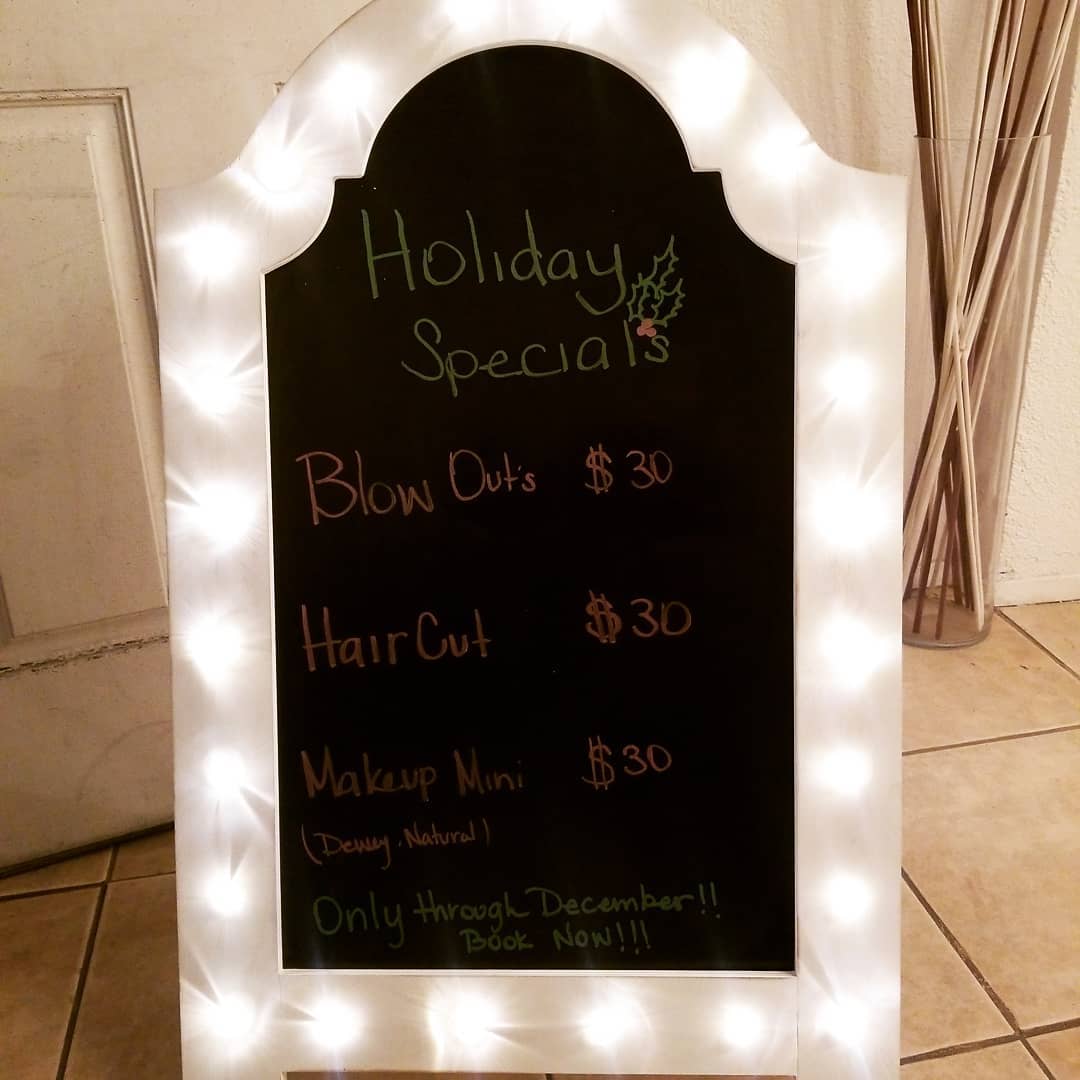 Holiday
Specials
Blow Out's $30
Hair Cut $30
Makeup Mini $30
(Dewey, Natural)
Only through December!!
Book Now!!!